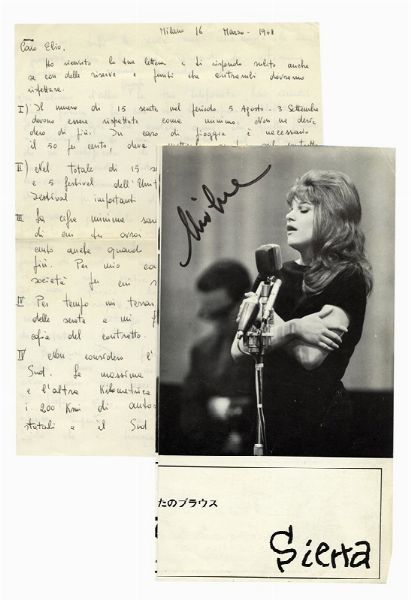 Milano 16 Marzo - 1968
Caro Elio.
Ho ricevuto la tua lettera e ti rispondo subito anche
se con delle riserve e punti che entrambi dovremo
rispettare.
I) Il numero di 15 serate nel periodo 5 Agosto - 3 Settembre
devono essere rispettate come minimo. Non ne
di più. In caso di pioggia è necessario
il 50 per cento,
II) Nel totale di 15 se
e 5 festival dell'Unit
Festival important
III) Le cifre minime sara
di cui tu avrai
anche quando
più. Per mio
società per cui
IV Per tempo mi
delle serate e mi
copia del contratto.
IV Non considero l'
Sud. La massima
e l'altra Kilometrica
i 200 Kmi di auto
statali e il Sud
Milva
たのブラウス
Sierra